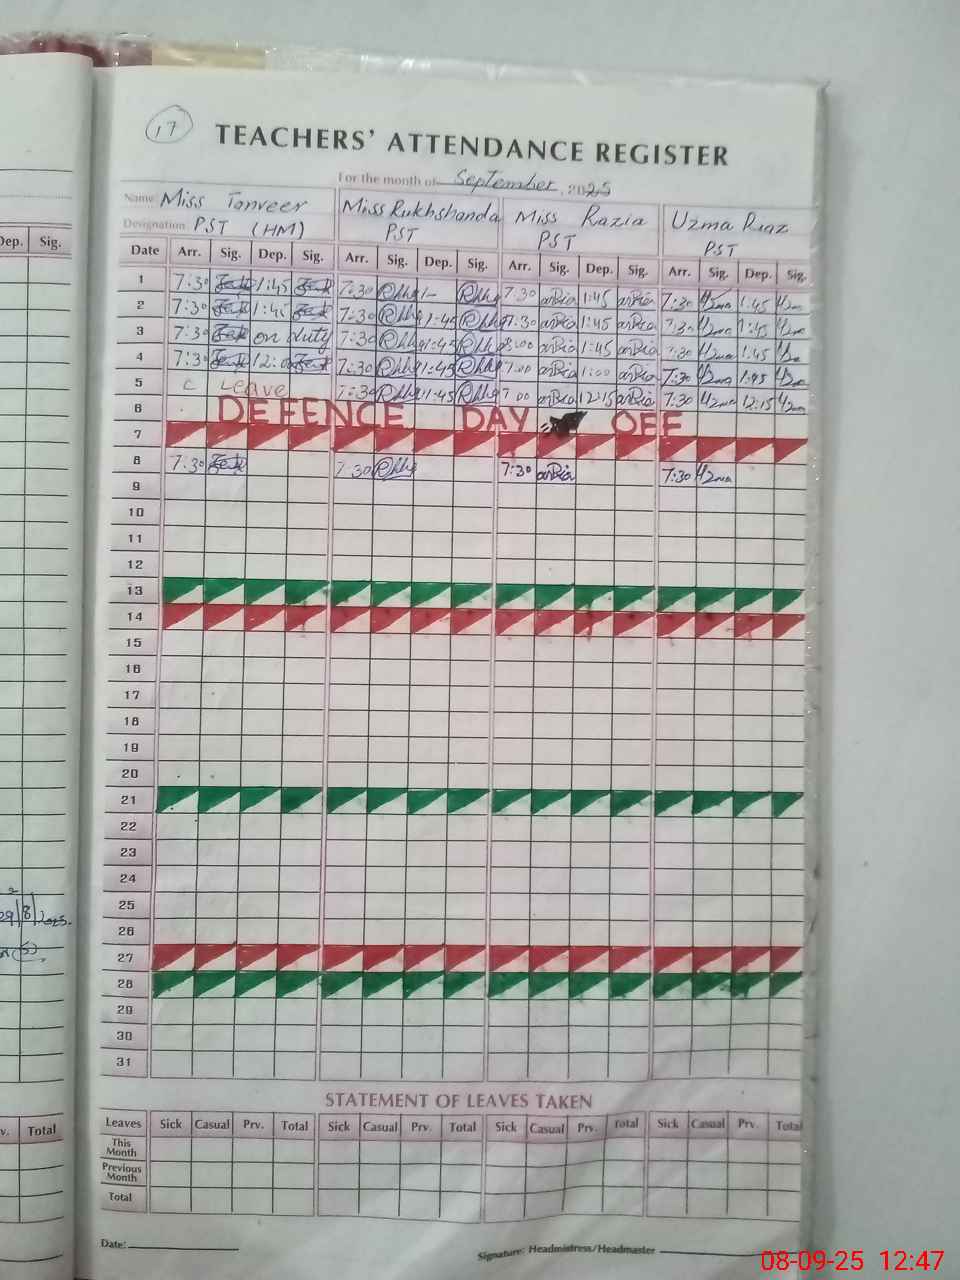 17
TEACHERS' ATTENDANCE REGISTER
For the month of September, 2025
Name Miss Tanveer Miss Rukhshanda Miss Razia Uzma Riaz
Designation PST (HM) PST PST PST
Dep. Sig.
Date Arr. Sig. Dep. Sig. Arr. Sig. Dep. Sig. Arr. Sig. Dep. Sig. Arr. Sig. Dep. Sig.
1 7:30 1:45 7:30 1- 7:30 1:45 7:30 1:45
2 7:30 1:45 7:30 1:45 7:30 1:45 7:30 1:45
3 7:30 on duty 7:30 1:45 8:00 1:45 7:30 1:45
4 7:30 12:00 7:30 1:45 7:00 1:00 7:30 1:45
5 C Leave 7:30 1:45 7:00 12:15 7:30 12:15
6 DEFENCE DAY OFF
7
8 7:30 7:30 7:30 7:30
9
10
11
12
13
14
15
16
17
18
19
20
21
22
23
24
25
26
27
28
29
30
31
29/8/2025.
STATEMENT OF LEAVES TAKEN
v. Total
Leaves Sick Casual Prv. Total Sick Casual Prv. Total Sick Casual Prv. Total Sick Casual Prv. Total
This Month
Previous Month
Total
Date:
Signature: Headmistress/Headmaster
08-09-25 12:47